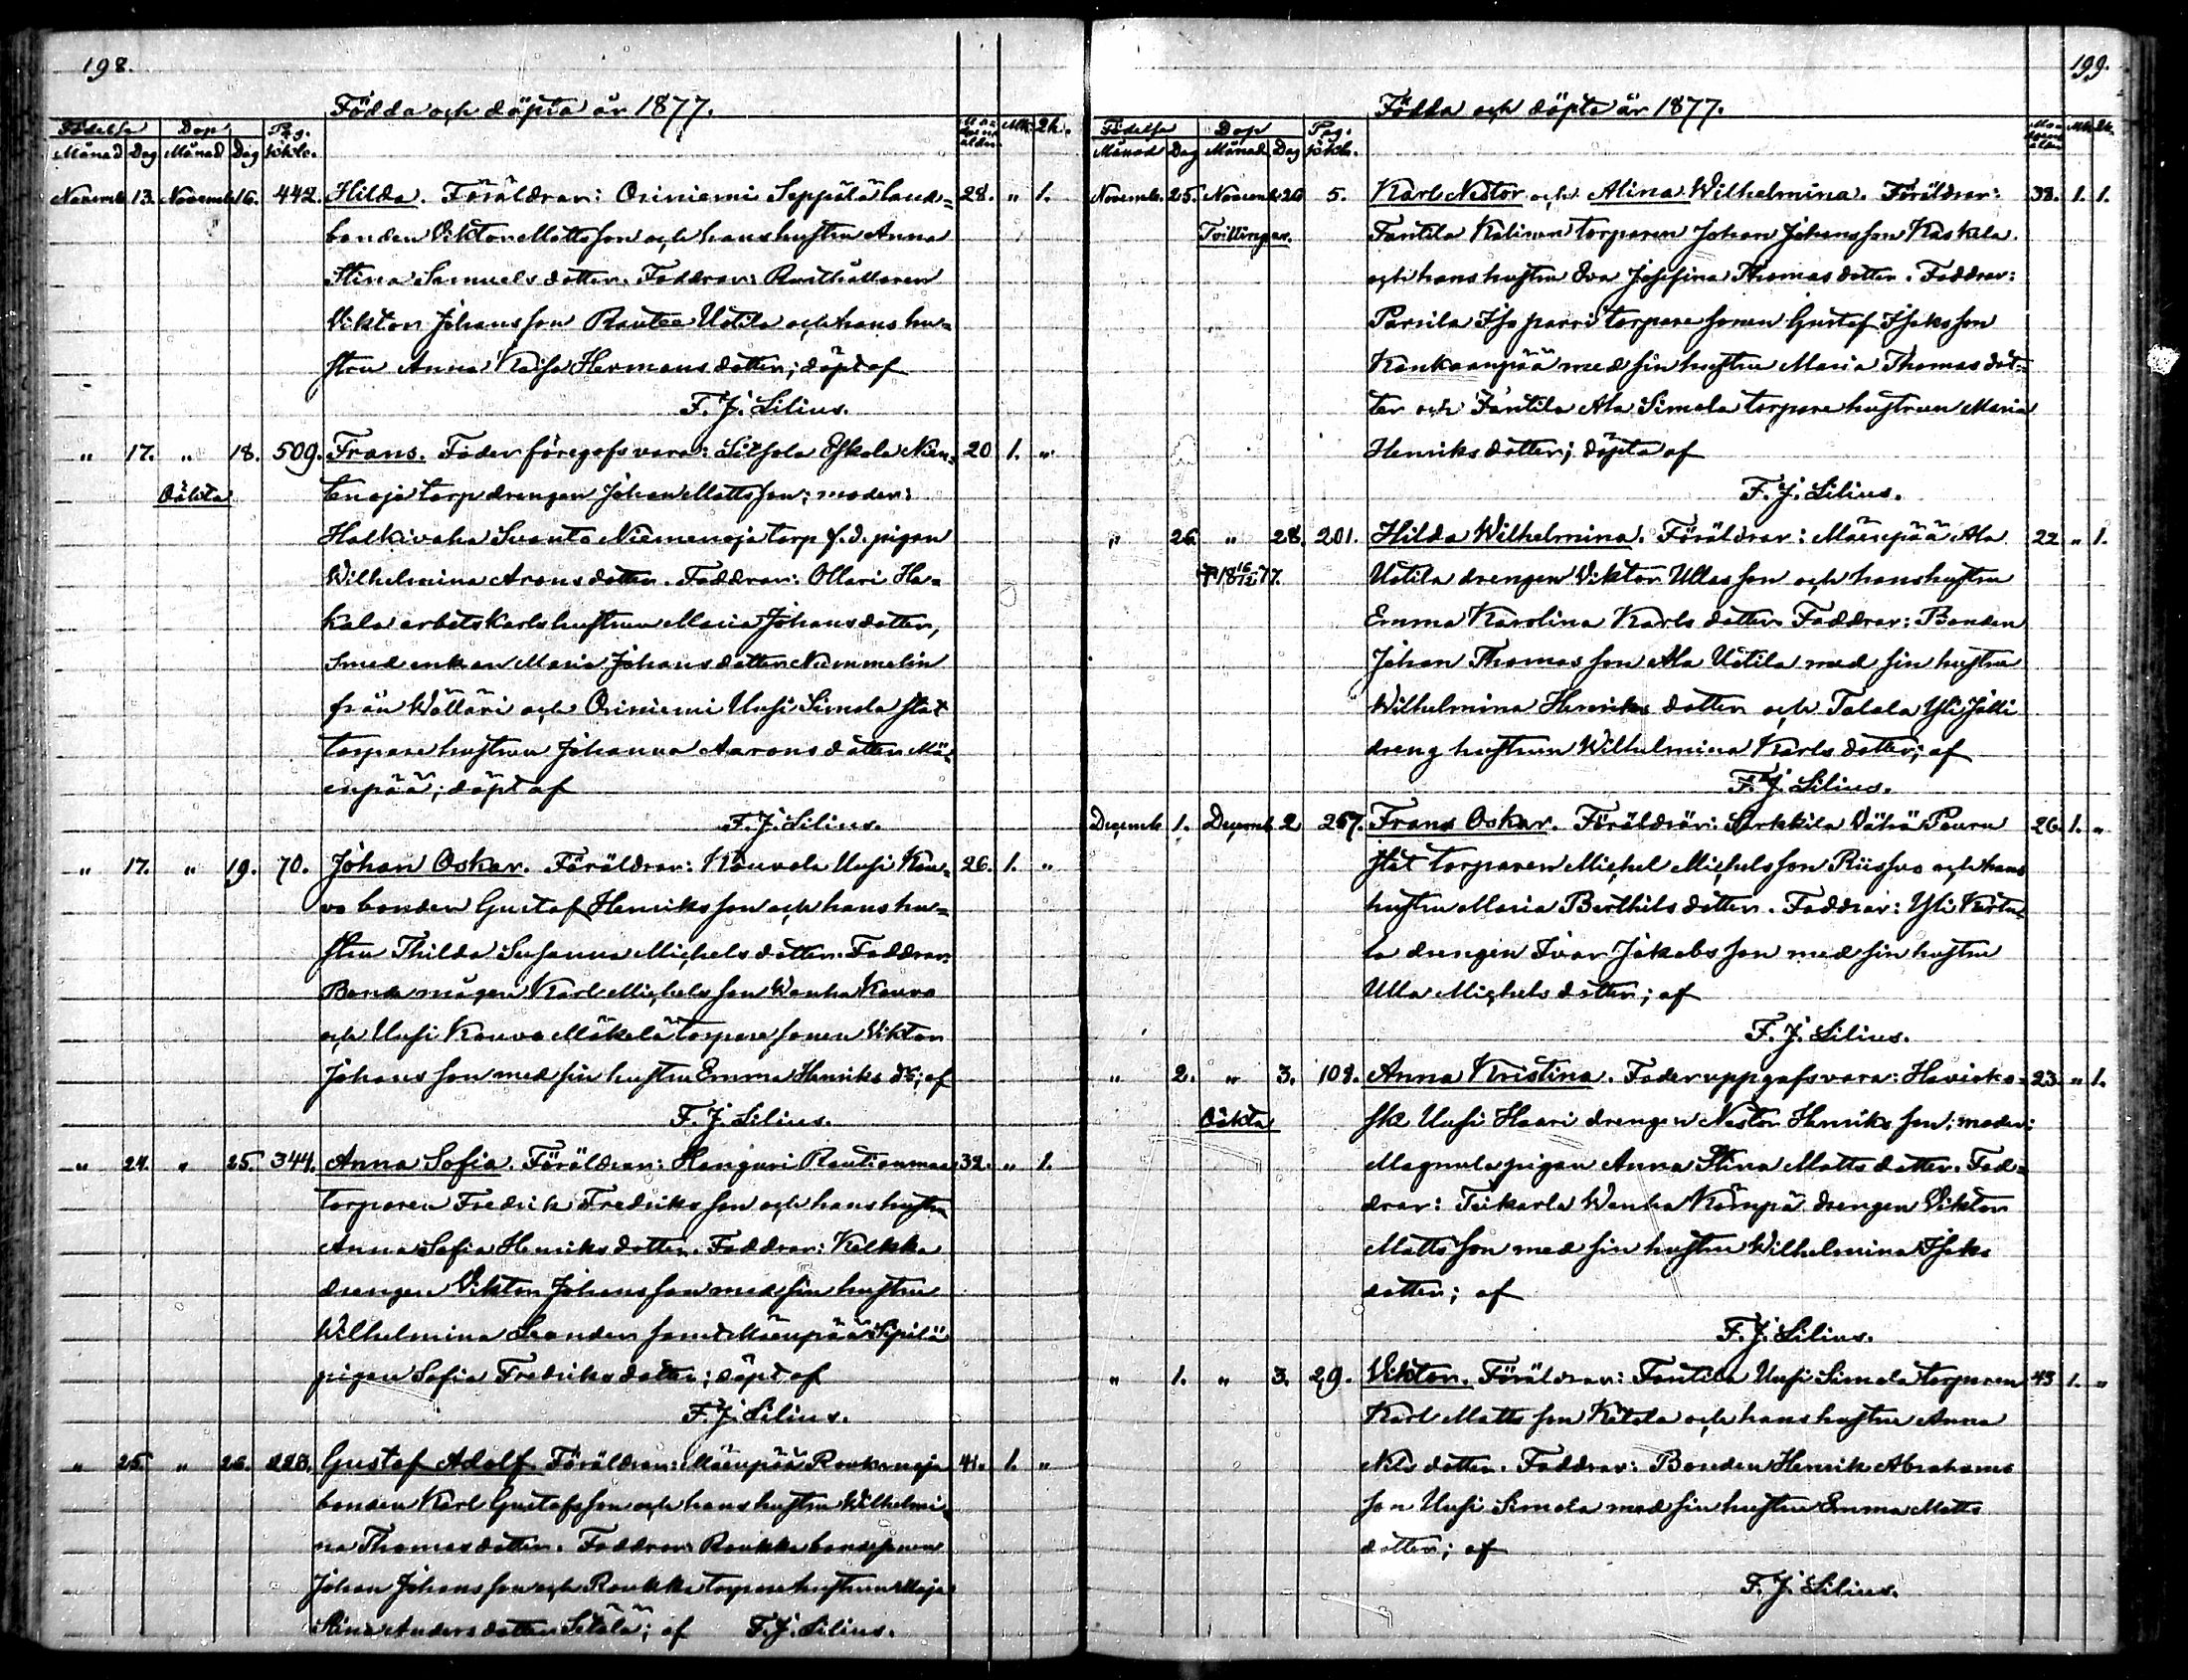 198.
Födda och döpta år 1877.
Födelse Dop Pag. Mo- Mk. Qk.
Månad Dag Månad Dag i kkb. derns ålder
Novemb. 13. Novemb. 16. 442. Hilda. Föräldrar: Oriniemi Seppälä land= 28. " 1.
bonden Viktor Matts son och hans hustru Anna
Stina Samuels dotter. Faddrar: Rusthållaren
Viktor Johans son Rautee Uotila och hans hu=
stru Anna Kaisa Hermans dotter; döpt af
F. J. Lilius.
" 17. " 18. 509. Frans. Fader föregafs vara: Eskola 20 1. "
Oäkta torp drengen Johan Matts son; moder:
Halkivaha Svanto Niemenoja torp f. d. pigan
Wilhelmina Arons dotter. Faddrar: Ollari Ha=
kala arbetskarls hustrun Maria Johans dotter,
smed enkan Maria Johans dotter Nummelin
från Wällari och Oriniemi Uusi Simola stat
torpare hustrun Johanna Aarons dotter Mä=
enpää; döpt af
F. J. Lilius.
" 17. " 19. 70. Johan Oskar. Föräldrar: Kouvola Uusi Kou= 26. 1. "
vo bonden Gustaf Henriks son och hans hu=
stru Thilda Susanna Michels dotter. Faddrar:
Bonde mågen Karl Michels son Wanha Kouvo
och Uusi Kouvo Mäkelä torpare sonen Viktor
Johans son med sin hustru Emma Henriks dr; af
F. J. Lilius.
" 24. " 25. 344. Anna Sofia. Föräldrar: Honguri Rautionmaa 32. " 1.
torparen Fredrik Fredriks son och hans hustru
Anna Sofia Henriks dotter. Faddrar: Kelkka
drengen Viktor Johans son med sin hustru
Wilhelmina Leander samt Mäenpää Sipilä
pigan Sofia Fredriks dotter; döpt af
F. J. Lilius.
" 25. " 26. 223. Gustaf Adolf. Föräldrar: Mäenpää 41. 1. "
bonden Karl Gustafs son och hans hustru Wilhelmi=
na Thomas dotter. Faddrar: Roukka bondesonen
Johan Johans son och Roukka torpare hustrun Maja
Stina Anders dotter Setälä; af F. J. Lilius.
199.
Födda och döpta år 1877.
Födelse Dop Pag. Mo- Mk. Qk.
Månad Dag Månad Dag i kkb. derns ålder
Novemb. 25. Novemb. 26 5. Karl Nestor och Alina Wilhelmina. Föräldrar: 38. 1. 1.
Tvillingar. Fantila Kälinen torparen Johan Johans son Kaskela
och hans hustru Eva Josefina Thomas dotter. Faddrar:
Parsila Iso parri torpare sonen Gustaf Isaks son
Kankaanpää med sin hustru Maria Thomas dot=
ter och Fantila Ala Simola torpare hustrun Maria
Henriks dotter; döpta af
F. J. Lilius.
" 26 " 28. 201. Hilda Wilhelmina. Föräldrar: Mäenpää Ala 22 " 1.
† 18 16/12 77. Uotila drengen Viktor Ullas son och hans hustru
Emma Karolina Karls dotter Faddrar: Bonden
Johan Thomas son Ala Uotila med sin hustru
Wilhelmina Henriks dotter och Talala Yli Jälli
dreng hustrun Wilhelmina Karls dotter; af
F. J. Lilius.
Decemb. 1. Decemb. 2 267. Frans Oskar. Föräldrar: Sarkkila Vähä Pauru 26. 1. "
stat torparen Michel Michels son Riissuo och hans
hustru Maria Berthils dotter. Faddrar: Yli Kirtu=
la drengen Ivar Jakobs son med sin hustru
Ulla Michels dotter; af
F. J. Lilius.
" 2. " 3. 108. Anna Kristina. Fader uppgafs vara: Haviokos= 23. " 1.
Oäkta ski Uusi Haari drengen Nestor Henriks son; moder:
Magnula pigan Anna Stina Matts dotter. Fad=
drar: Teikarla Wanha Kämpä drengen Viktor
Matts son med sin hustru Wilhelmina Isaks
dotter; af
F. J. Lilius.
" 1. " 3. 29. Viktor. Föräldrar: Fantila Uusi Simola torparen 43 1. "
Karl Matts son Ketola och hans hustru Anna
Nils dotter. Faddrar: Bonden Henrik Abrahams
son Uusi Simola med sin hustru Emma Matts
dotter; af
F. J. Lilius.